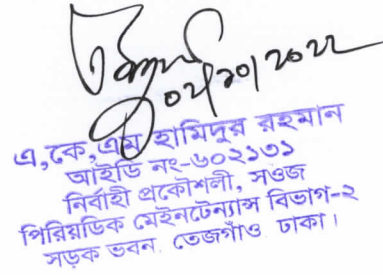 ০২/১০/২০২২
এ,কে,এম হামিদুর রহমান
আইডি নং-৬০২১৩১
নির্বাহী প্রকৌশলী, সওজ
পিরিয়ডিক মেইনটেন্যান্স বিভাগ-২
সড়ক ভবন, তেজগাঁও ঢাকা।